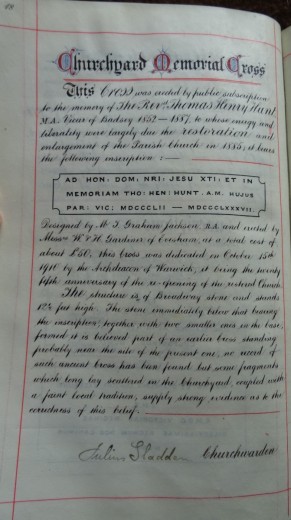 Churchyard Memorial Cross
This Cross was erected by public subscription
to the memory of The Revd. Thomas Henry Hunt
M.A. Vicar of Badsey 1852 — 1887, to whose energy and
liberality were largely due the restoration and
enlargement of the Parish Church in 1885; it bears
the following inscription : —
AD: HON: DOM: NRI: JESU XTI: ET IN
MEMORIAM THO: HEN: HUNT. A.M. HUJUS
PAR: VIC; MDCCCLII — MDCCCLXXXVII.
Designed by Mr. T. Graham Jackson, R.A. and erected by
Messrs. W. & H. Gardiner of Evesham, at a total cost of
about £50, this Cross was dedicated on October 15th
1910 by the Archdeacon of Warwick, it being the twenty
fifth anniversary of the re-opening of the restored Church.
The structure is of Broadway stone and stands
12½ feet high. The stone immediately below that bearing
the inscription, together with two smaller ones in the base,
formed it is believed part of an earlier Cross standing
probably near the site of the present one; no record of
such ancient Cross has been found, but some fragments
which long lay scattered in the Churchyard, coupled with
a faint local tradition, supply strong evidence as to the
correctness of this belief.
Julius Sladden Churchwarden